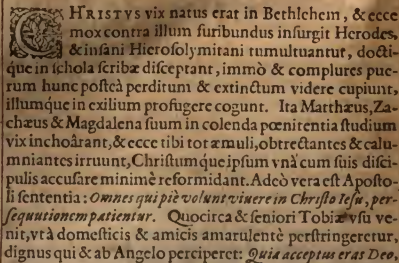 CHRISTVS vix natus erat in Bethlehem, & ecce
mox contra illum furibundus insurgit Herodes,
& insani Hierosolymitani tumultuantur, docti-
que in schola scribæ disceptant, immò & complures pue-
rum hunc posteà perditum & extinctum videre cupiunt,
illumque in exilium profugere cogunt. Ita Matthæus, Za-
chæus & Magdalena suum in colenda pœnitentia studium
vix inchoârant, & ecce tibi tot æmuli, obtrectantes & calu-
mniantes irruunt, Christumque ipsum vnà cum suis disci-
pulis accusare minimè reformidant. Adeò vera est Aposto-
li sententia: Omnes qui piè volunt viuere in Christo Iesu, per-
sequutionem patientur. Quocirca & seniori Tobiæ vsu ve-
nit, vt à domesticis & amicis amarulentè perstringeretur,
dignus qui & ab Angelo perciperet: Quia acceptus eras Deo,